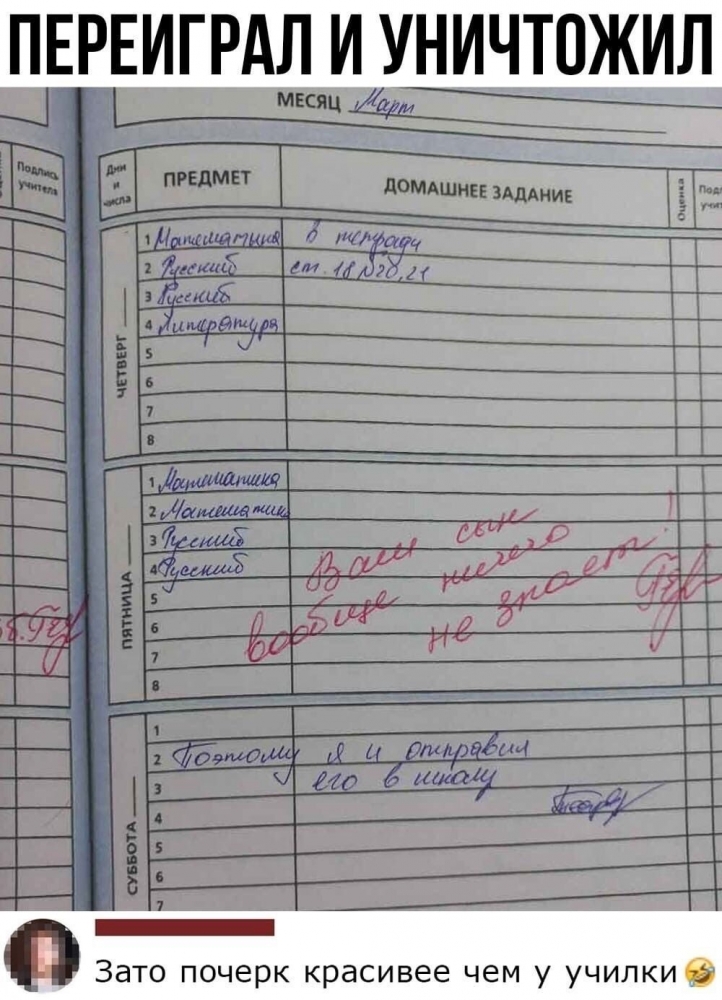 ПЕРЕИГРАЛ И УНИЧТОЖИЛ
МЕСЯЦ Март
Подпись учителя
Дни и числа
ПРЕДМЕТ
ДОМАШНЕЕ ЗАДАНИЕ
Оценка
ЧЕТВЕРГ
1 Математика в тетради
2 Русский ст. 18 №20,21
3 Русский
4 Литература
5
6
7
8
ПЯТНИЦА
1 Математика
2 Математика
3 Русский
4 Русский
5
6
7
8
Ваш сын
вообще ничего
не знает!
СУББОТА
1
2 Поэтому я и отправил
3 его в школу
4
5
6
7
Зато почерк красивее чем у училки🤣